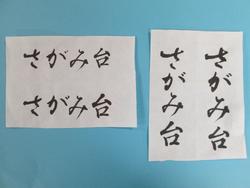 さがみ台
さがみ台
さがみ台
さがみ台